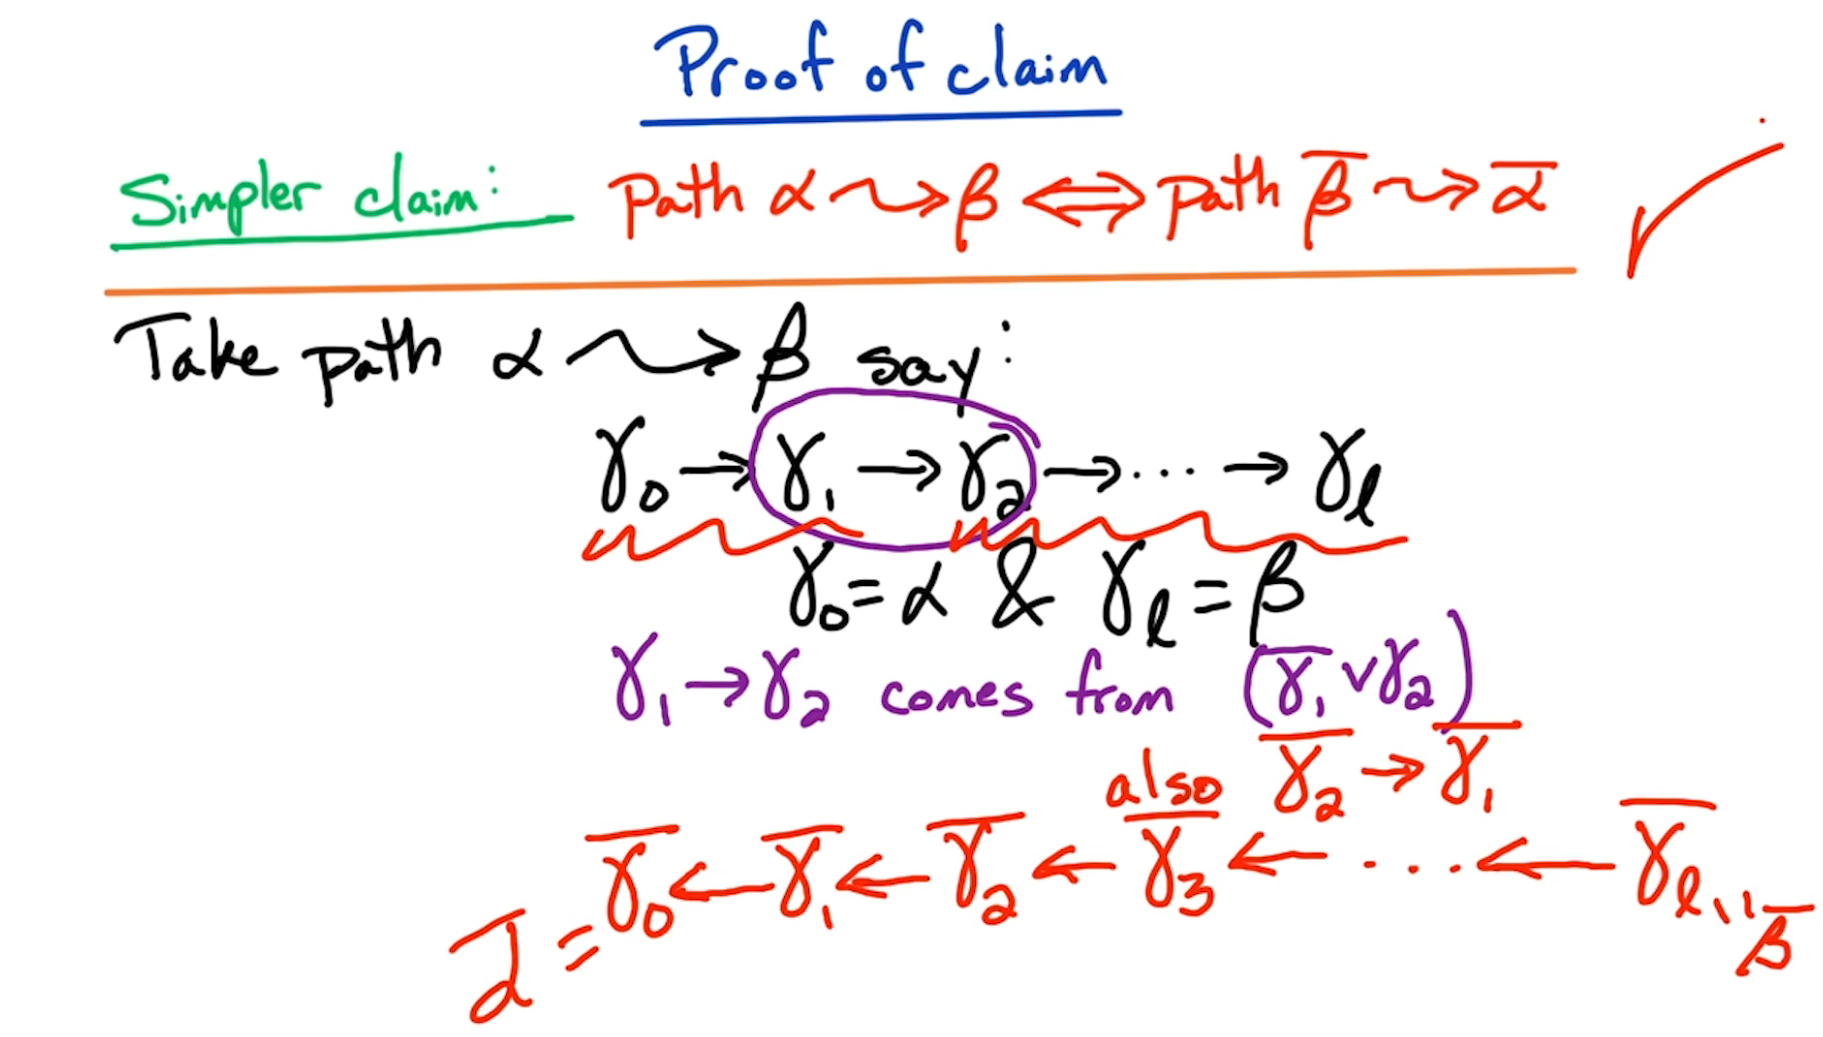 Proof of claim
Simpler claim: path α ⇝ β ⟺ path β̅ ⇝ α̅
Take path α ⇝ β say:
γ₀ → γ₁ → γ₂ → ... → γₗ
γ₀ = α & γₗ = β
γ₁ → γ₂ comes from (γ̅₁ ∨ γ₂)
also γ̅₂ → γ̅₁
γ̅₀ ← γ̅₁ ← γ̅₂ ← γ̅₃ ← ... ← γ̅ₗ
α̅ = " β̅